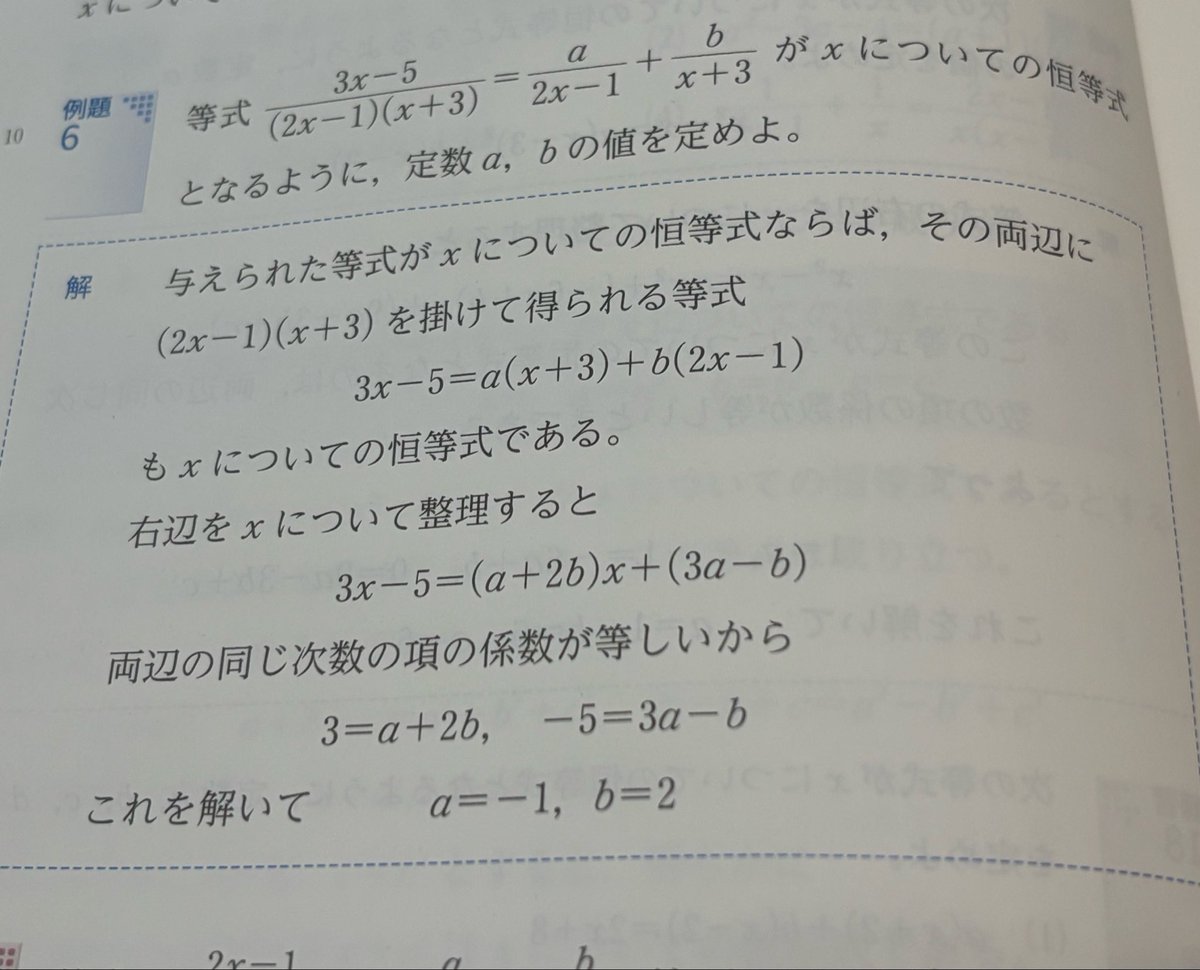 x に
10
例題
6
等式 \frac{3x-5}{(2x-1)(x+3)} = \frac{a}{2x-1} + \frac{b}{x+3} が x についての恒等式
となるように，定数 a，b の値を定めよ。
解 与えられた等式が x についての恒等式ならば，その両辺に
(2x-1)(x+3) を掛けて得られる等式
3x-5=a(x+3)+b(2x-1)
も x についての恒等式である。
右辺を x について整理すると
3x-5=(a+2b)x+(3a-b)
両辺の同じ次数の項の係数が等しいから
3=a+2b, -5=3a-b
これを解いて a=-1, b=2
2x-1 a b